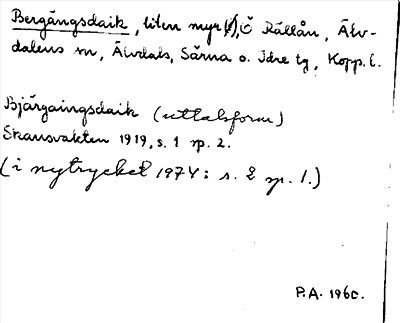 Bergängsdaik, liten myr Ö Rällån, Älv-
dalens sn, Älvdals, Särna o. Idre tg, Kopp. l.
Bjärgaingsdaik (uttalsform)
Skansvakten 1919, s. 1 sp. 2.
(i nytrycket 1974: s. 2 sp. 1.)
P.A. 1960.